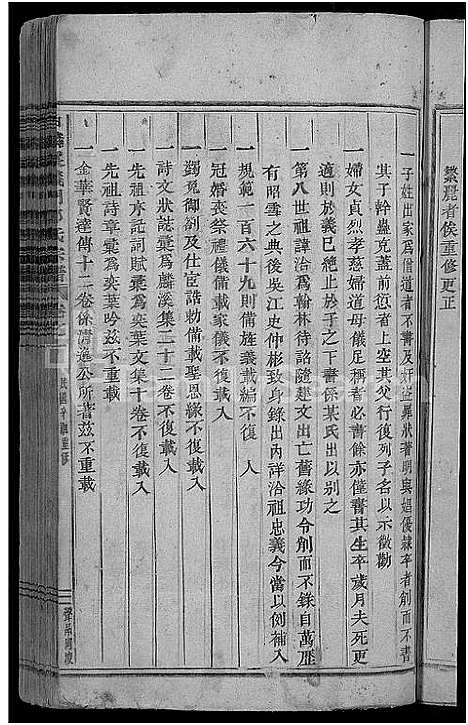 繁庑者俟重修更正
一子姓出家為僧道者不書及奸盜罪狀著明與娼優隸卒者削而不書
其子幹蠱克蓋前愆者上空其父行復列子名以示徵勸
一婦女貞烈孝慈婦道母儀足稱者必書餘亦僅書其生卒歲月夫死更
適則於義已絕止於子之下書係某氏出以別之
一第八世祖諱洽為翰林待詔隨建文出亡舊緣功令削而不錄自萬歷
有昭雪之典後吳江史仲彬致身錄出內詳洽祖忠義今當以例補入
一規範一百六十九則備旌義載編不復 入
一冠婚喪祭禮儀備載家儀不復載入
一蠲免御劄及仕宦誥勅備載聖恩緣不復載入
一詩文狀誌彙為麟溪集二十二卷不復載入
一先祖序記詞賦彙為奕葉文集十卷不復載入
一先祖詩章彙為奕葉吟茲不重載
一金華賢達傳十二卷係清逸公所著茲不重載